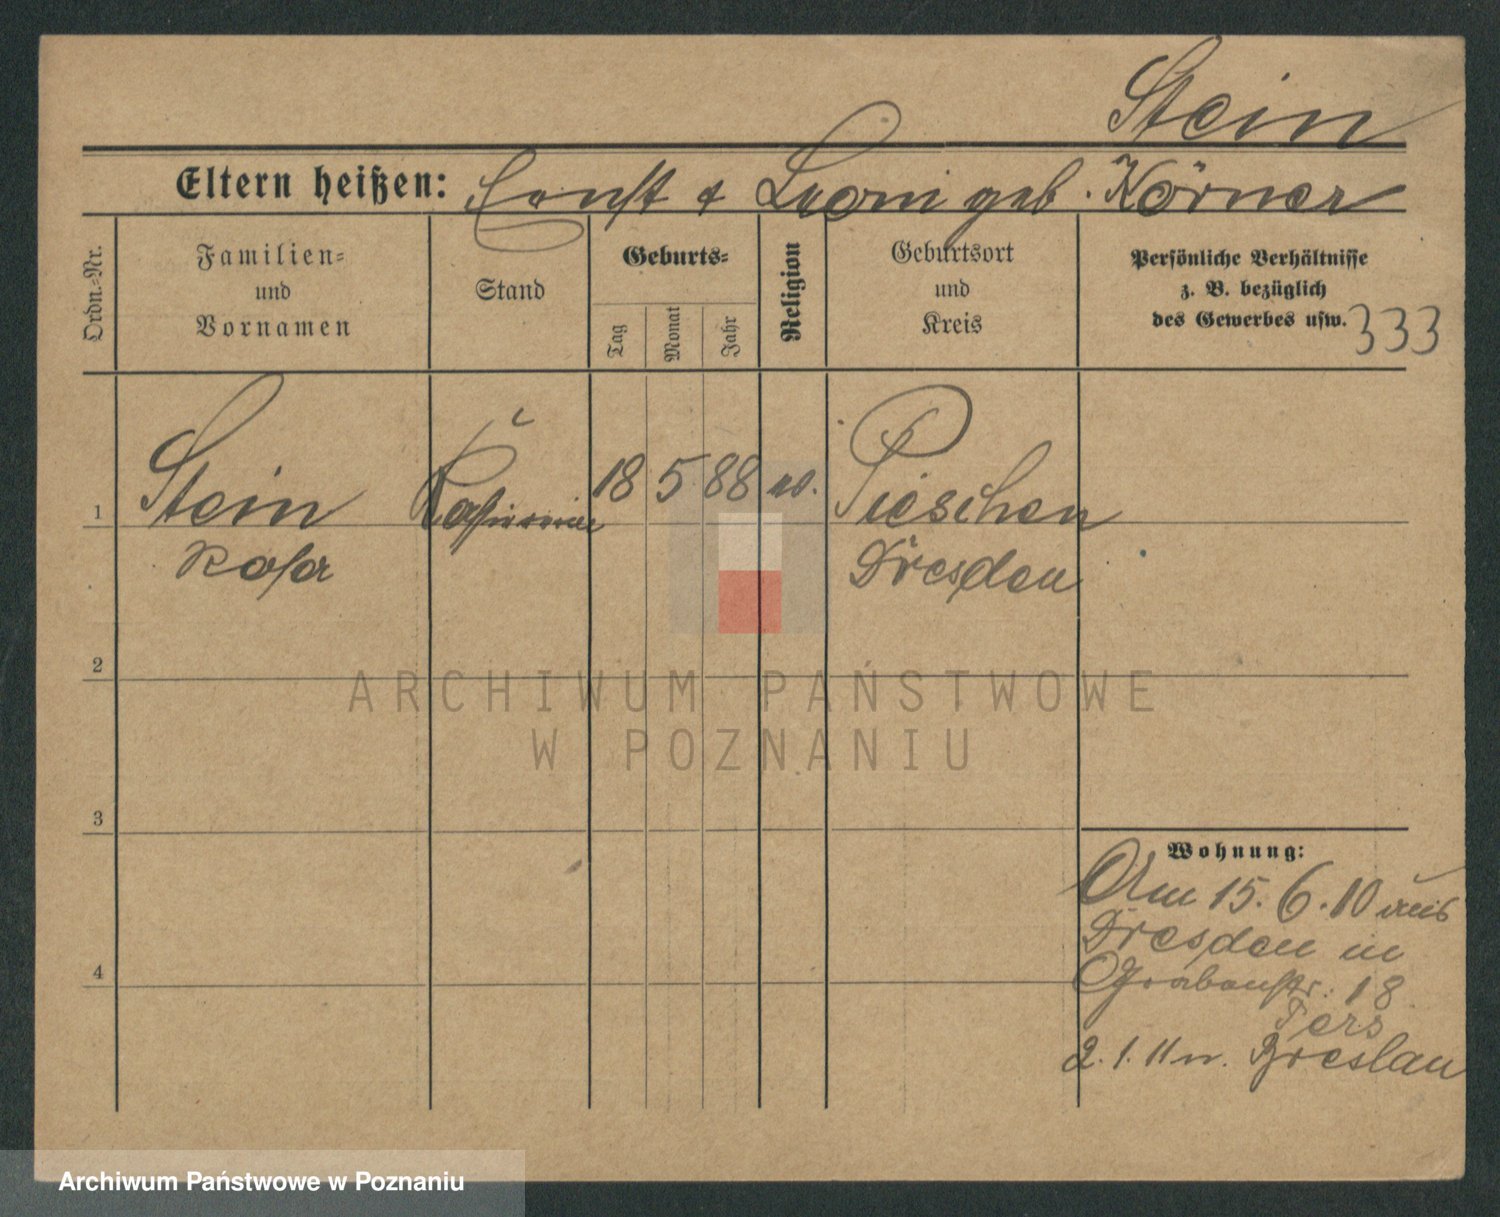 Stein
Eltern heißen: Ernst & Leoni geb. Körner
Ordn.-Nr.
Familien-
und
Vornamen
Stand
Geburts-
Tag
Monat
Jahr
Religion
Geburtsort
und
Kreis
Persönliche Verhältnisse
z. B. bezüglich
des Gewerbes usw.
333
1
Stein
Rosa
Kassiererin
18 5 88
ev.
Pieschen
Dresden
2
3
4
Wohnung:
Am 15. 6. 10 aus
Dresden in
Grabenstr. 18
Pers
2. 1. 11 n. Breslau
ARCHIWUM PAŃSTWOWE
W POZNANIU
Archiwum Państwowe w Poznaniu